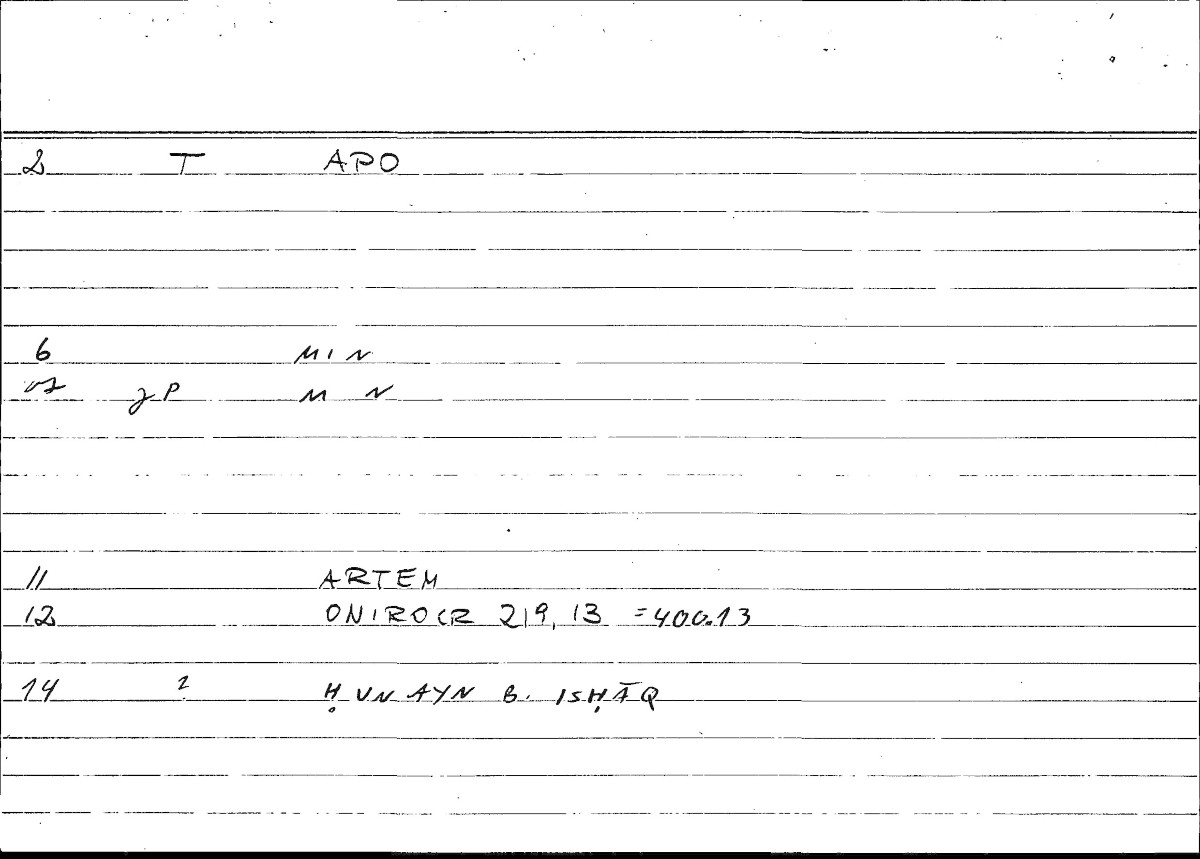 2 T APO
6 MIN
P M N
11 ARTEM
12 ONIROCR 219, 13 =400.13
14 ? ḤUNAYN B. ISḤĀQ